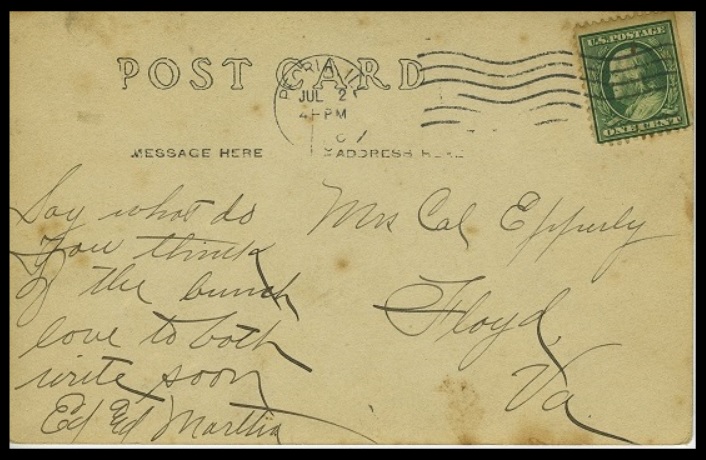 POST CARD
U.S. POSTAGE
JUL 2
4-PM
ONE CENT
MESSAGE HERE
ADDRESS HERE
Say what do
you think
of the bunch
love to both
write soon
Ed Martha
Mrs Cal Epperly
Floyd,
Va.